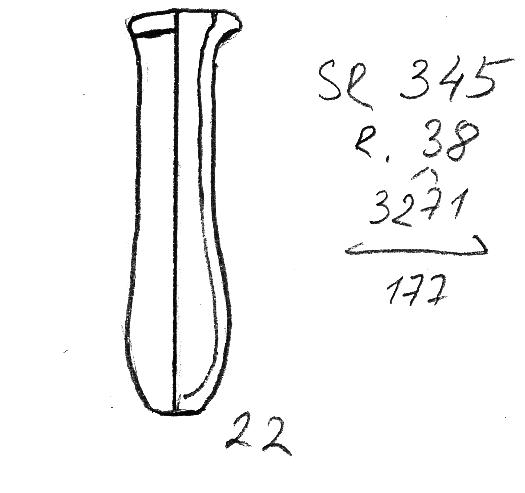 SR 345
R. 38
3271
177
22